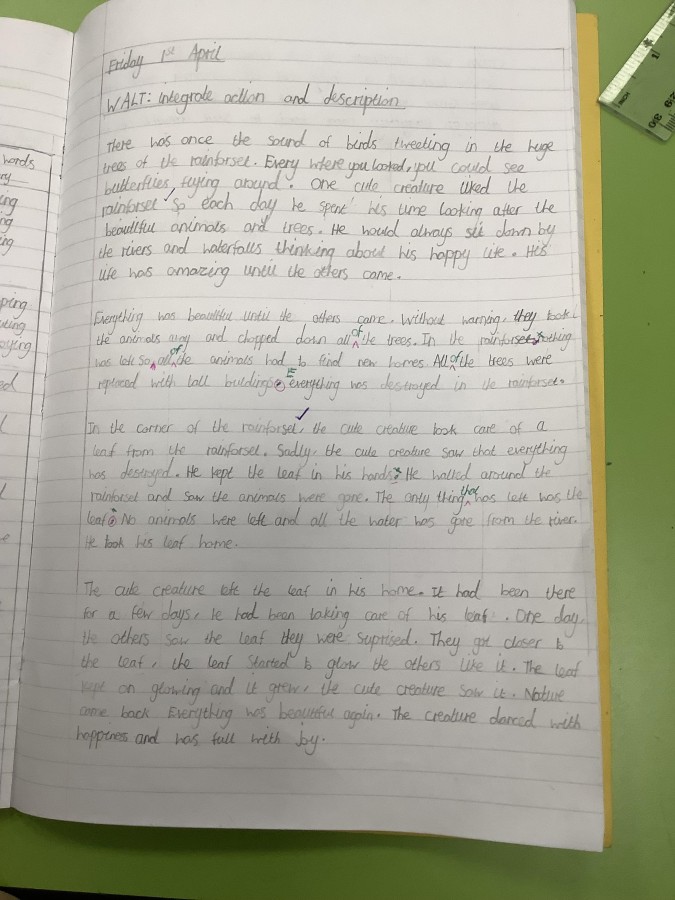 Friday 1st April
WALT: Integrate action and description
There was once the sound of birds tweeting in the huge
trees of the rainforset. Every where you looked, you could see
butterflies flying around. One cute creature liked the
rainforset So each day he spent his time looking after the
beautiful animals and trees. He would always sit down by
the rivers and waterfalls thinking about his happy life. His
life was amazing until the others came.
Everything was beautiful until the others came. Without warning, they took
the animals away and chopped down all of the trees. In the rainforset nothing
was left so all of the animals had to find new homes All of the trees were
replaced with tall buildings. Everything was destroyed in the rainforset.
In the corner of the rainforset, the cute creature took care of a
leaf from the rainforset. Sadly, the cute creature saw that everything
was destroyed. He kept the leaf in his hands. He walked around the
rainforset and saw the animals were gone. The only thing that was left was the
leaf. No animals were left and all the water was gone from the river.
He took his leaf home.
The cute creature left the leaf in his home. It had been there
for a few days, he had been taking care of his leaf. One day,
the others saw the leaf they were suprised. They got closer to
the leaf, the leaf started to glow the others like it. The leaf
kept on glowing and it grew, the cute creature saw it. Nature
came back Everything was beautiful again. The creature danced with
happiness and was full with joy.
words
ry
ing
ng
ing
ping
ying
ed
30